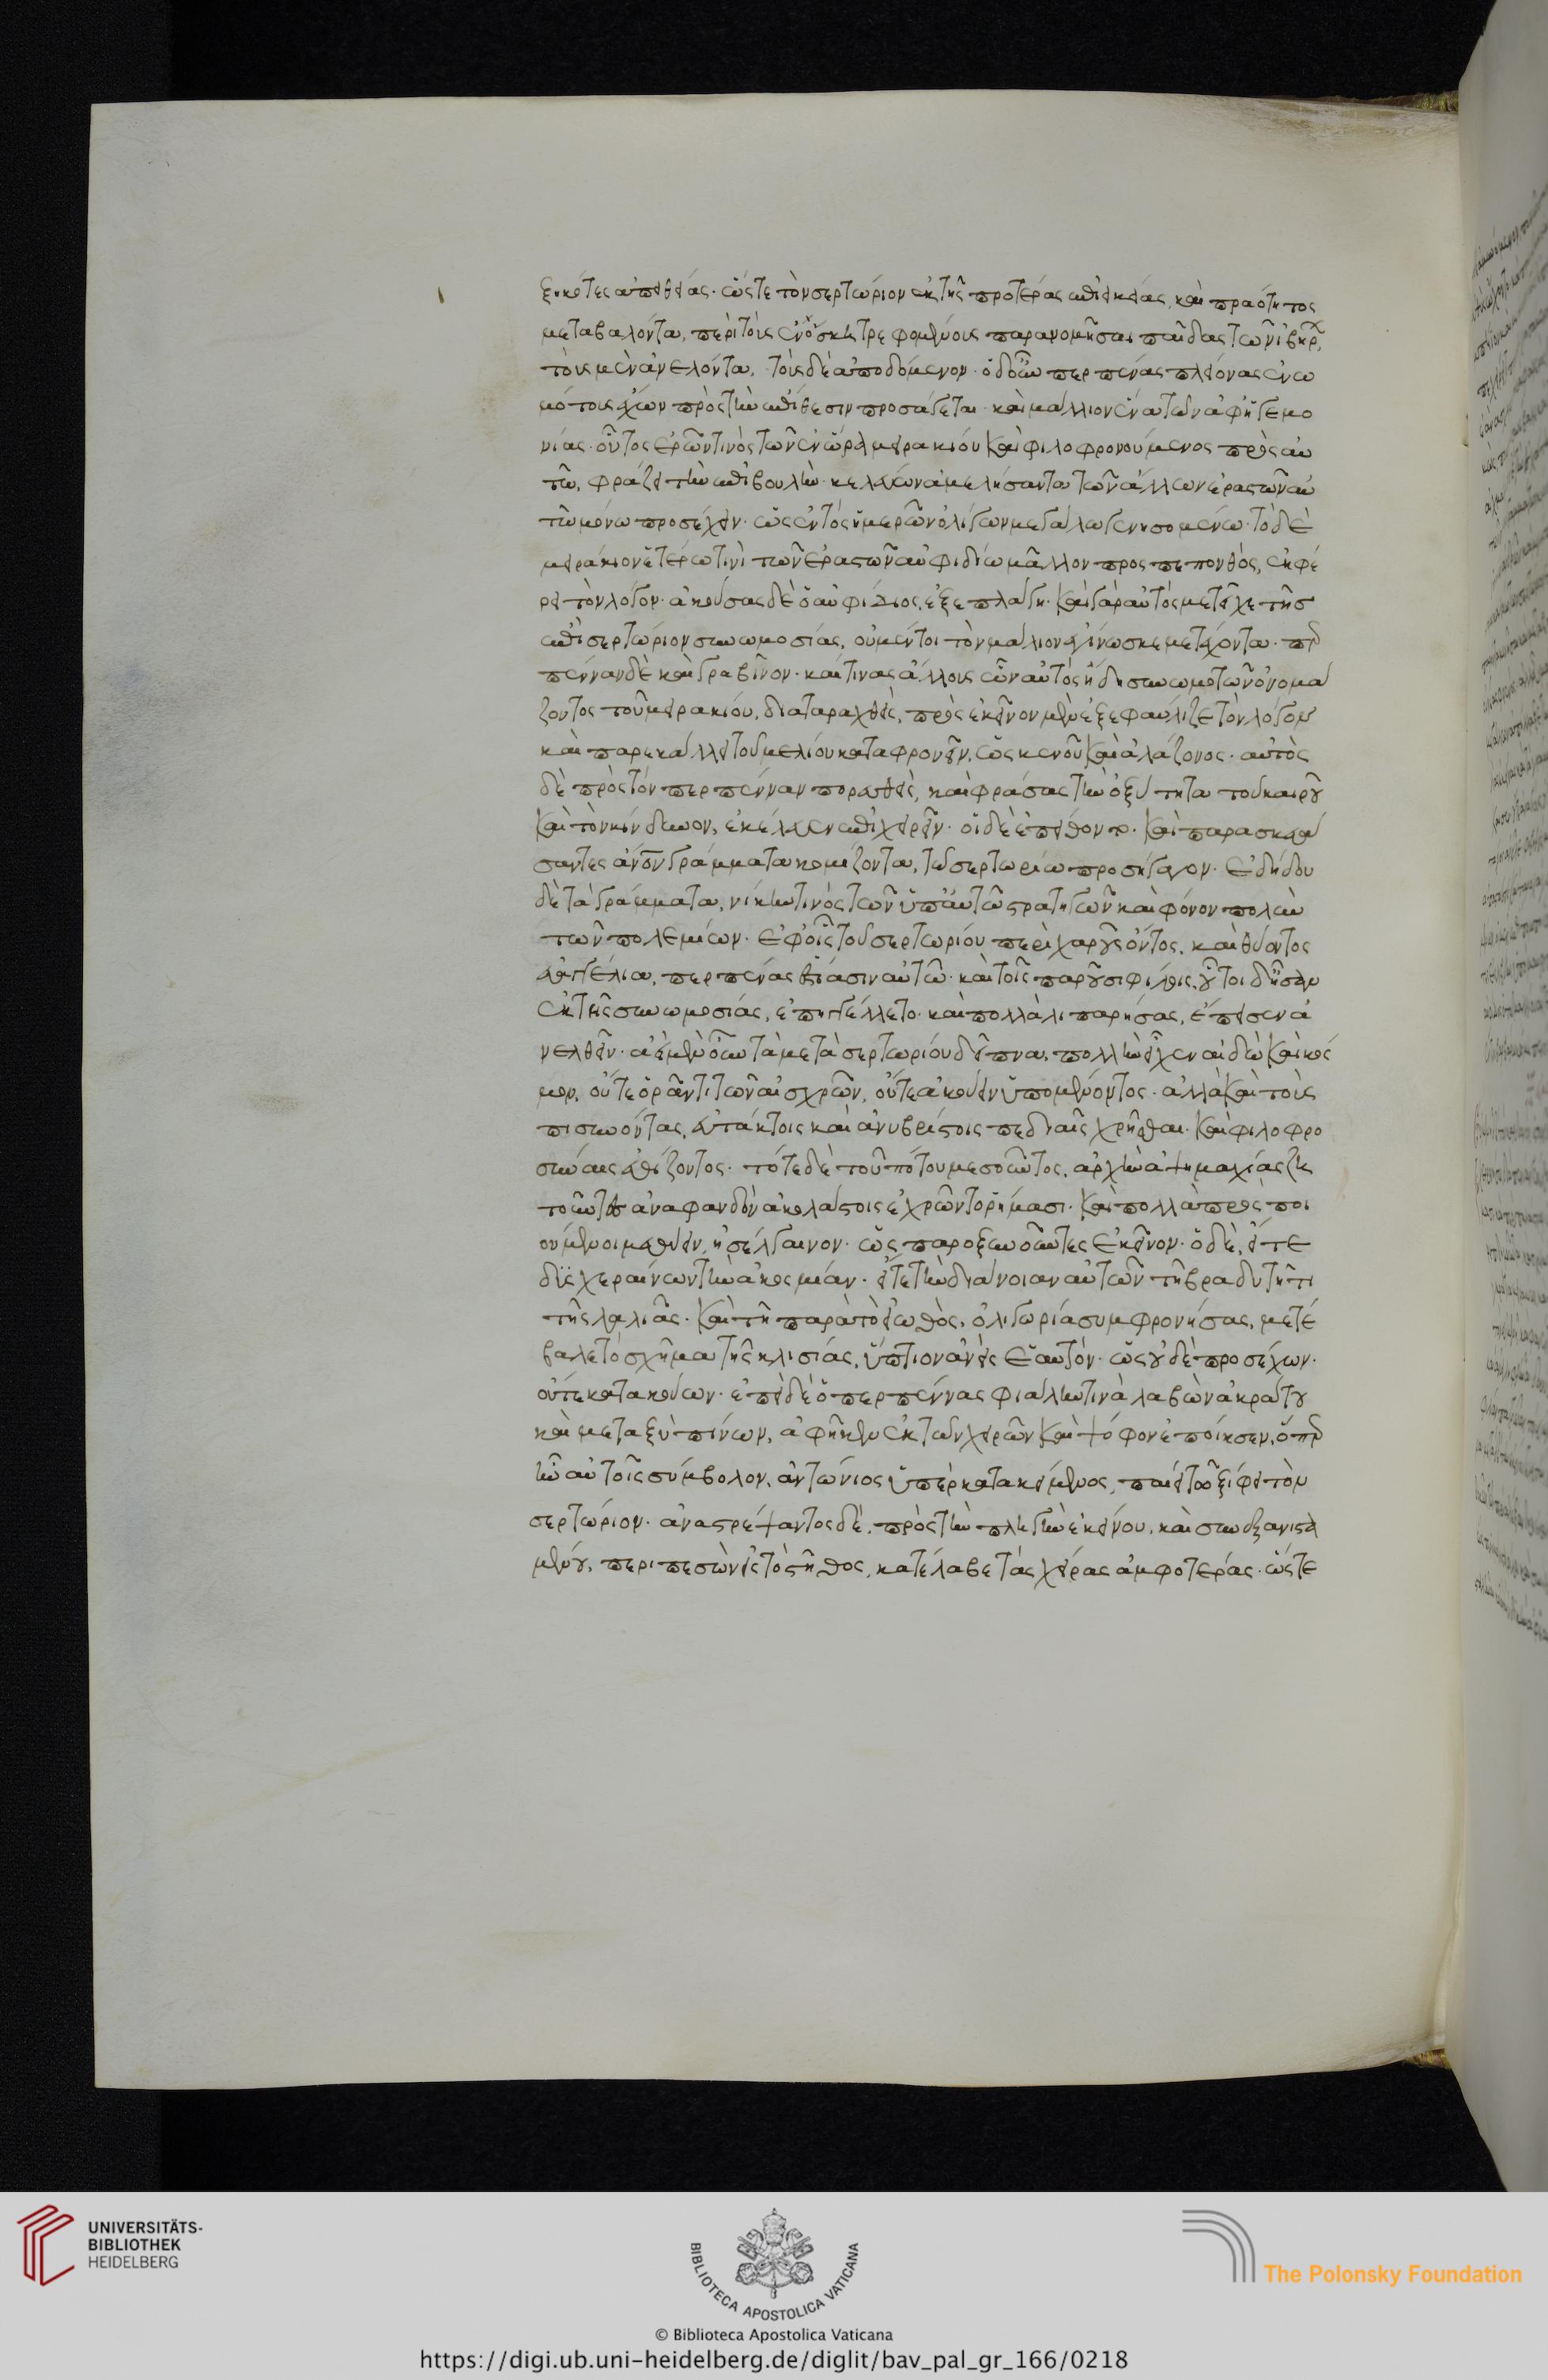 ξηκότες ἀπηθείας· ὥστε τὸν σερτώριον ἐκ τῆς προτέρας ἐπιεικείας, καὶ πραότητος
μεταβαλόντα, περὶ τοὺς ἐν ὄσκη τρεφομένους παρανομῆσαι παῖδας τῶν ἰβήρ
τοὺς μὲν ἀνελόντα, τοὺς δὲ ἀποδόμενον· ὁ δοὖν περπένας πλείονας συνω
μότους ἔχων πρὸς τὴν ἐπίθεσιν προσάγεται καὶ μάλλιον ἕνα τῶν ἀφηγεμο
νίας· οὗτος ἐρῶν τινὸς τῶν ἐν ὥρα μειρακίου καὶ φιλοφρονούμενος πρὸς αὐ
τὸν, φράζει τὴν ἐπιβουλὴν· κελεύων ἀμελήσαντα τῶν ἄλλων ἐραστῶν αὐ
τῶ μόνω προσέχειν· ὡς ἐντὸς ἡμερῶν ὀλίγων μεγάλω γενησομένω· τὸ δὲ
μειράκιον ἑτέρω τινὶ τῶν ἐραστῶν αὐφιδίω μᾶλλον προσπεπονθὸς, ἐκφέ
ρει τὸν λόγον· ἀκούσας δὲ ὁ αὐφίδιος, ἐξεπλάγη· καὶ γὰρ αὐτὸς μετεῖχε τῆς
ἐπὶ σερτώριον συνωμοσίας, οὐ μέντοι τὸν μάλιον ἐγίνωσκε μετέχοντα· περ
πένναν δὲ καὶ γραβῖνον· καί τινας ἄλλους ὧν αὐτὸς ἤδη συνωμοτῶν ὀνομά
ζοντος τοῦ μειρακίου, διαταραχθεὶς, πρὸς ἐκεῖνον μὲν ἐξεφαύλιζε τὸν λόγον
καὶ παρεκάλει τοῦ μελίου καταφρονεῖν, ὡς κενοῦ καὶ ἀλάζονος· αὐτὸς
δὲ πρὸς τὸν περπένναν πορευθεὶς, καὶ φράσας τὴν ὀξύτητα τοῦ καιροῦ
καὶ τὸν κίνδυνον, ἐκέλευεν ἐπιχειρεῖν· οἱ δὲ ἐπείθοντο· καὶ παρασκευά
σαντες ἄνον γράμματα κομίζοντα, τῶ σερτωρίω προσήγαγον· ἐδήλου
δὲ τὰ γράμματα, νίκην τινὸς τῶν ὑπ αὐτῶ στρατηγῶν καὶ φόνον πολὺν
τῶν πολεμίων· ἐφ οἷς τοῦ σερτωρίου περιχαροῦς ὄντος, καὶ θύοντος
εὐαγγέλια, περπένας ἑστίασιν αὐτῶ· καὶ τοῖς παροῦσι φίλοις, οὗτοι δ ἦσαν
ἐκ τῆς συνωμοσίας, ἐπηγγέλλετο· καὶ πολλὰ λιπαρήσας, ἔπεισεν ἀ
νελθεῖν· ἀεὶ μὲν οὖν τὰ μετὰ σερτωρίου δεῖπνα, πολλὴν εἶχεν αἰδῶ καὶ κόσ
μον, οὔτε ὁρᾶν τι τῶν αἰσχρῶν, οὔτε ἀκούειν ὑπομένοντος· ἀλλὰ καὶ τοὺς
πισυνόντας, εὐτάκτοις καὶ ἀνυβρίστοις πεδιαῖς χρῆσθαι· καὶ φιλοφρο
σύναις ἐθίζοντος· τότε δὲ τοῦ πότου μεσοῦντος, ἀρχὴν ἀψιμαχίας ζη
τοῦντες ἀναφανδὸν ἀκολάστοις ἐχρῶντο ῥήμασι· καὶ πολλὰ πρὸς ποι
ούμενοι μεθύειν, ἠσέλγαινον· ὡς παροξυνοῦντες ἐκεῖνον· ὁ δὲ, εἴτε
δυσχεραίνων τὴν ἀκοσμίαν· εἴτε τὴν διάνοιαν αὐτῶν τῆ βραδυτῆτι
τῆς λαλιᾶς· καὶ τῆ παρὰ τὸ εἰωθὸς, ὀλιγωρία συμφρονήσας, μετέ
βαλε τὸ σχῆμα τῆς κλισίας, ὕπτιον ἀνεὶς ἑαυτόν· ὡς οὐδὲ προσέχων·
οὔτε κατακούων· ἐπεὶ δὲ ὁ περπέννας φιάλην τινὰ λαβὼν ἀκράτου
καὶ μεταξὺ πίνων, ἀφῆκεν ἐκ τῶν χειρῶν καὶ ψόφον ἐποίησεν, ὅπερ
ἦν αὐτοῖς σύμβολον, ἀντώνιος ὑπερκατακείμενος, παίει τῶ ξίφει τὸν
σερτώριον· ἀναστρέψαντος δὲ, πρὸς τὴν πληγὴν ἐκείνου, καὶ συνεξανιστα
μένου, περιπεσὼν εἰς τὸ στῆθος, κατέλαβε τὰς χεῖρας ἀμφοτέρας· ὥστε
UNIVERSITÄTS-
BIBLIOTHEK
HEIDELBERG
BIBLIOTECA APOSTOLICA VATICANA
The Polonsky Foundation
© Biblioteca Apostolica Vaticana
https://digi.ub.uni-heidelberg.de/diglit/bav_pal_gr_166/0218